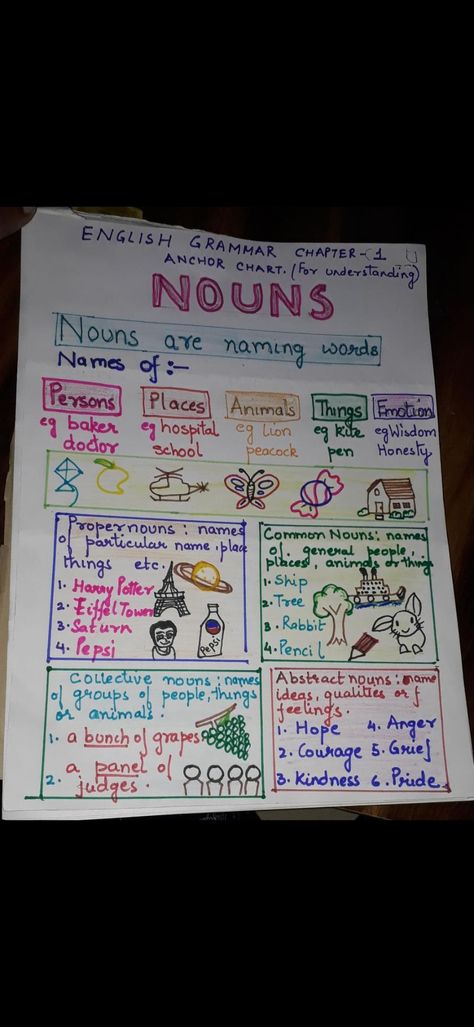 ENGLISH GRAMMAR CHAPTER-1
ANCHOR CHART. (For understanding)
NOUNS
Nouns are naming words
Names of :-
Persons
eg baker
doctor
Places
eg hospital
school
Animals
eg Lion
peacock
Things
eg kite
pen
Emotion
eg Wisdom
Honesty
Proper nouns : names
of particular name, place
things etc.
1. Harry Potter
2. Eiffel Tower
3. Saturn
4. Pepsi
PEPSI
Common Nouns: names
of general people,
places, animals or things
1. Ship
2. Tree
3. Rabbit
4. Pencil
Collective nouns : names
of groups of people, things
or animals.
1. a bunch of grapes
2. a panel of
judges.
Abstract nouns : name
ideas, qualities or
feelings.
1. Hope
2. Courage
3. Kindness
4. Anger
5. Grief
6. Pride